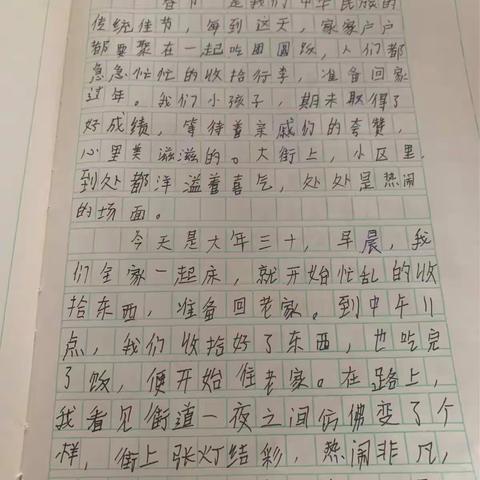 春节 是我们中华民族的
传统佳节，每到这天，家家户户
都要聚在一起吃团圆饭，人们都
急急忙忙的收拾行李，准备回家
过年。我们小孩子，期末取得了
好成绩，等待着亲戚们的夸赞，
心里美滋滋的。大街上，小区里，
到处都洋溢着喜气，处处是热闹
的场面。
今天是大年三十，早晨，我
们全家一起床，就开始忙乱的收
拾东西，准备回老家。到中午11
点，我们收拾好了东西，也吃完
了饭，便开始往老家。在路上，
我看见街道一夜之间仿佛变了个
样，街上张灯结彩，热闹非凡，